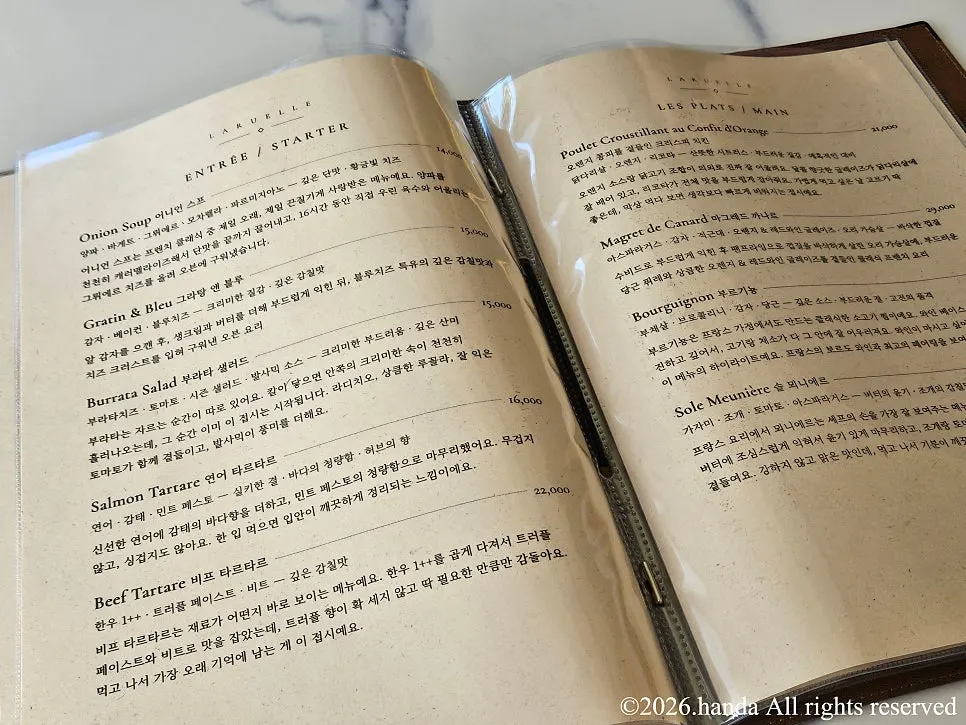 LARUELLE
ENTRÉE / STARTER
Onion Soup 어니언 스프 14,000
양파 · 바게트 · 그뤼에르 · 모차렐라 · 파르미지아노 — 깊은 단맛 · 황금빛 치즈
어니언 스프는 프렌치 클래식 중 제일 오래, 제일 끈질기게 사랑받은 메뉴예요. 양파를
천천히 캐러멜라이즈해서 단맛을 끝까지 끌어내고, 16시간 동안 직접 우린 육수와 어울리는
그뤼에르 치즈를 올려 오븐에 구워냈습니다.
Gratin & Bleu 그라탕 앤 블루 15,000
감자 · 베이컨 · 블루치즈 — 크리미한 질감 · 깊은 감칠맛
알 감자를 으깬 후, 생크림과 버터를 더해 부드럽게 익힌 뒤, 블루치즈 특유의 깊은 감칠맛과
치즈 크러스트를 입혀 구워낸 오븐 요리
Burrata Salad 부라타 샐러드 15,000
부라타치즈 · 토마토 · 시즌 샐러드 · 발사믹 소스 — 크리미한 부드러움 · 깊은 산미
부라타는 자르는 순간이 따로 있어요. 칼이 닿으면 안쪽의 크리미한 속이 천천히
흘러나오는데, 그 순간 이미 이 접시는 시작됩니다. 라디치오, 상큼한 루꼴라, 잘 익은
토마토가 함께 곁들이고, 발사믹이 풍미를 더해요.
Salmon Tartare 연어 타르타르 16,000
연어 · 감태 · 민트 페스토 — 실키한 결 · 바다의 청량함 · 허브의 향
신선한 연어에 감태의 바다향을 더하고, 민트 페스토의 청량함으로 마무리했어요. 무겁지
않고, 싱겁지도 않아요. 한 입 먹으면 입안이 깨끗하게 정리되는 느낌이에요.
Beef Tartare 비프 타르타르 22,000
한우 1++ · 트러플 페이스트 · 비트 — 깊은 감칠맛
비프 타르타르는 재료가 어떤지 바로 보이는 메뉴예요. 한우 1++를 곱게 다져서 트러플
페이스트와 비트로 맛을 잡았는데, 트러플 향이 확 세지 않고 딱 필요한 만큼만 감돌아요.
먹고 나서 가장 오래 기억에 남는 게 이 접시예요.
LARUELLE
LES PLATS / MAIN
Poulet Croustillant au Confit d'Orange 21,000
오렌지 콩피를 곁들인 크리스피 치킨
닭다리살 · 오렌지 · 리코타 — 산뜻한 시트러스 · 부드러운 질감 · 매혹적인 대비
오렌지 소스랑 닭고기 조합이 의외로 진짜 잘 어울려요. 달콤 향긋한 오렌지 글레이즈가 닭다리살에
잘 배어 있고, 리코타가 전체 맛을 부드럽게 잡아줘요. 가볍게 먹고 싶은 날 고르기 딱
좋은데, 막상 먹다 보면 생각보다 빠르게 비워지는 접시예요.
Magret de Canard 마그레드 까나르 29,000
아스파라거스 · 감자 · 적근대 · 오렌지 & 레드와인 글레이즈 · 오리 가슴살 — 바삭한 껍질
수비드로 부드럽게 익힌 후 팬프라잉으로 껍질을 바삭하게 살린 오리 가슴살에, 부드러운
당근 퓌레와 상큼한 오렌지 & 레드와인 글레이즈를 곁들인 클래식 프렌치 요리
Bourguignon 부르기뇽
부채살 · 브로콜리니 · 감자 · 당근 — 깊은 소스 · 부드러운 결 · 고전의 품격
부르기뇽은 프랑스 가정에서도 만드는 클래식한 소고기 찜이에요. 와인 베이스
진하고 깊어서, 고기랑 채소가 다 그 안에 잘 어우러져요. 와인이 마시고 싶어
이 메뉴의 하이라이트예요. 프랑스의 보르도 와인과 최고의 페어링을 보여
Sole Meunière 솔 뫼니에르
가자미 · 조개 · 토마토 · 아스파라거스 — 버터의 윤기 · 조개의 감칠
프랑스 요리에서 뫼니에르는 셰프의 손을 가장 잘 보여주는 메뉴
버터에 조심스럽게 익혀서 윤기 있게 마무리하고, 조개랑 토마
곁들여요. 강하지 않고 맑은 맛인데, 먹고 나서 기분이 깨끗
©2026.handa All rights reserved